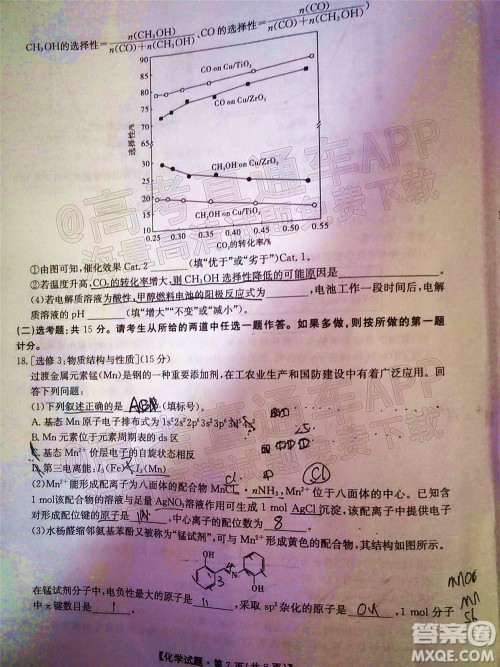 CH₃OH的选择性=n(CH₃OH)/n(CO)+n(CH₃OH)、CO的选择性=n(CO)/n(CO)+n(CH₃OH))
选择性/%
90
85
80
75
70
65
30
25
20
15
10
CO on Cu/TiO₂
CO on Cu/ZrO₂
CH₃OH on Cu/ZrO₂
CH₃OH on Cu/TiO₂
0.25 0.30 0.35 0.40 0.45 0.50 0.55
CO₂的转化率/%
①由图可知，催化效果Cat.2________(填“优于”或“劣于”)Cat.1。
②若温度升高，CO₂的转化率增大、则CH₃OH选择性降低的可能原因是________。
(4)若电解质溶液为酸性，甲醇燃料电池的阳极反应式为________，电池工作一段时间后，电解
质溶液的pH________(填“增大”“不变”或“减小”)。
(二)选考题：共15分。请考生从所给的两道中任选一题作答。如果多做，则按所做的第一题
计分。
18.[选修3：物质结构与性质](15分)
过渡金属元素锰(Mn)是钢的一种重要添加剂，在工农业生产和国防建设中有着广泛应用。回
答下列问题：
(1)下列叙述正确的是________(填标号)。
A.基态Mn原子电子排布式为1s²2s²2p⁶3s²3p⁶
B.Mn元素位于元素周期表的ds区
C.基态Mn²⁺价层电子的自旋状态相反
D.第三电离能：I₃(Fe)<I₃(Mn)
(2)Mn²⁺能形成配离子为八面体的配合物MnCl·nNH₃，Mn²⁺位于八面体的中心。已知含
1 mol该配合物的溶液与足量AgNO₃溶液作用可生成1 mol AgCl沉淀，该配离子中提供电子
对形成配位键的原子是________，中心离子的配位数为 8 。
(3)水杨醛缩邻氨基苯酚又被称为“锰试剂”，可与Mn²⁺形成黄色的配合物，其结构如图所示。
OH
N
OH
在锰试剂分子中，电负性最大的原子是________，采取sp²杂化的原子是________，1 mol分子
中π键数目是________。
【化学试题·第7页(共8页)】
高考直通车APP
答案圈
MXQE.COM